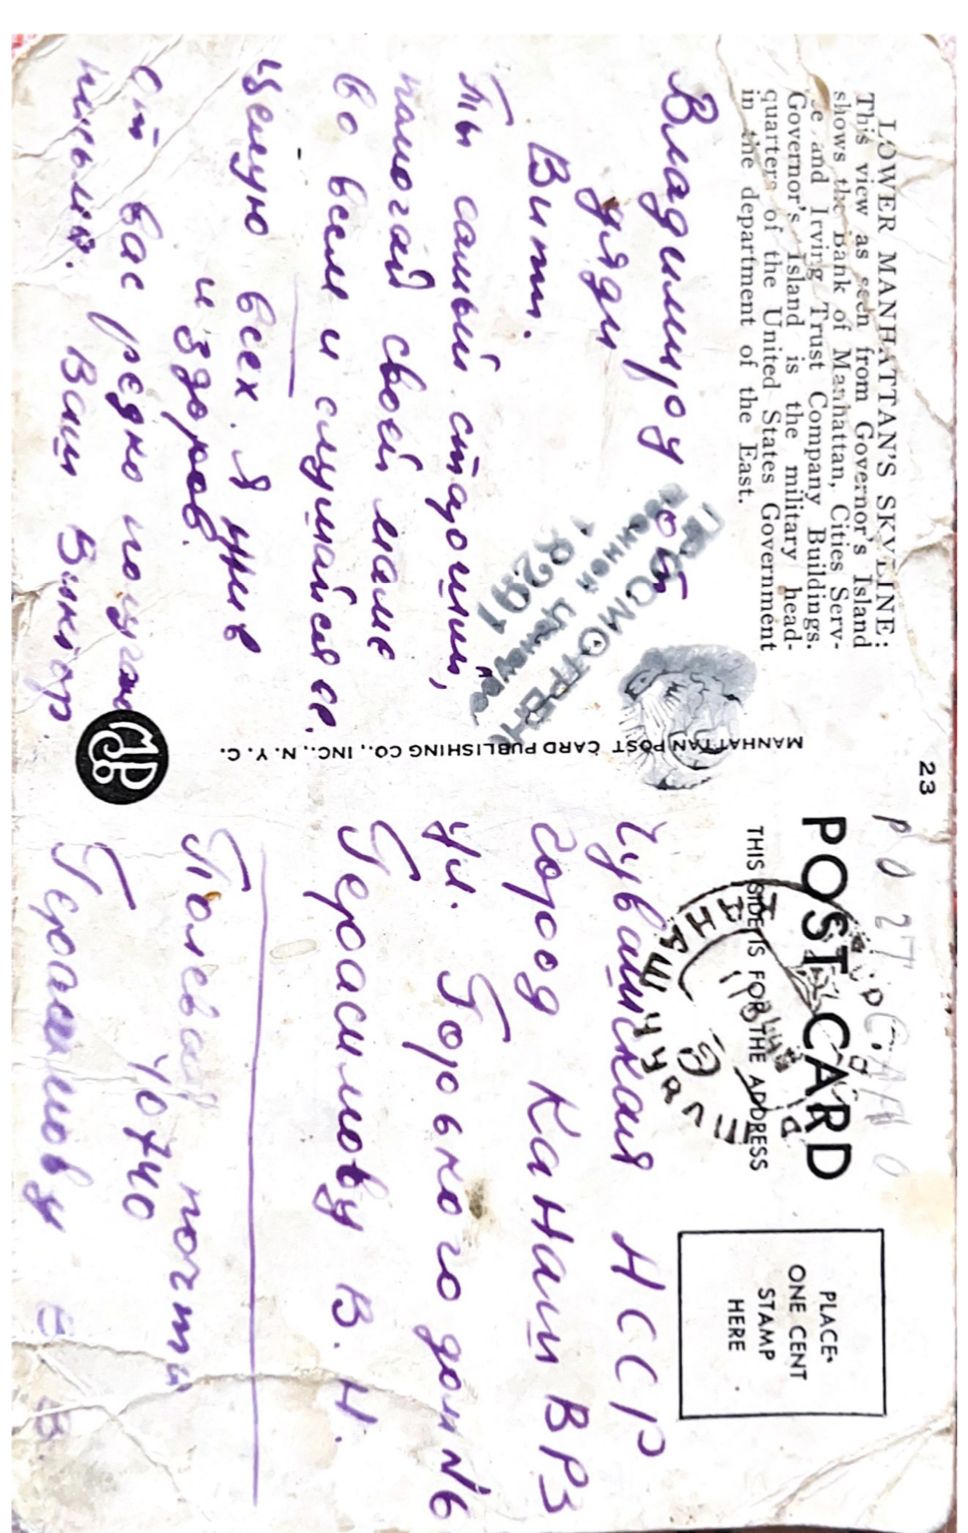 LOWER MANHATTAN'S SKYLINE:
This view as seen from Governor's Island
shows the Bank of Manhattan, Cities Serv-
ice and Irving Trust Company Buildings.
Governor's Island is the military head-
quarters of the United States Government
in the department of the East.
Владимиру от
дяди
Вити.
Ты самый старший,
помогай своей маме
во всем и слушайся ее.
Целую всех. Я жив
и здоров.
От вас редко получаю
письма. Ваш Виктор
ПРОСМОТРЕНО
Военной Цензурой
10291
MANHATTAN POST CARD PUBLISHING CO., INC., N. Y. C.
23
POST CARD
THIS SIDE IS FOR THE ADDRESS
PLACE
ONE CENT
STAMP
HERE
КАНАШ ЧУВАШ
Чувашская НССР
город Канаш ВРЗ
ул. Горького дом №6
Герасимову В. Н.
Полевая почта
40740
Герасимову В В